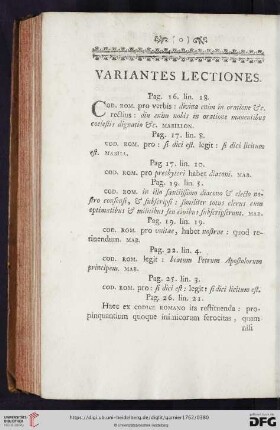 ( o )
VARIANTES LECTIONES.
Pag. 16. lin. 18.
COD. ROM. pro verbis: divina enim in oratione &c.
rectius: diu enim nobis in oratione manentibus
coelestis dignatio &c. MABILLON.
Pag. 17. lin. 8.
COD. ROM. pro: si dici est. legit: si dici licitum
est. MABILL.
Pag. 17. lin. 10.
COD. ROM. pro presbyteri habet diaconi. MAB.
Pag. 19. lin. 5.
COD. ROM. in illo sanctissimo diacono & electo no-
stro consensi, & subscripsi: similiter totus clerus cum
optimatibus & militibus seu civibus subscripserunt. MAB.
Pag. 19. lin. 19.
COD. ROM. pro unitae, habet nostrae: quod re-
tinendum. MAB.
Pag. 22. lin. 4.
COD. ROM. legit: beatum Petrum Apostolorum
principem. MAB.
Pag. 25. lin. 3.
COD. ROM. pro: si dici est: legit: si dici licitum est.
Pag. 26. lin. 21.
Haec ex CODICE ROMANO ita restituenda: pro-
pinquantium quoque inimicorum ferocitas, quam-
https://digi.ub.uni-heidelberg.de/diglit/garnier1762/0380
© Universitätsbibliothek Heidelberg
UNIVERSITÄTS-
BIBLIOTHEK
HEIDELBERG
gefördert durch die
DFG